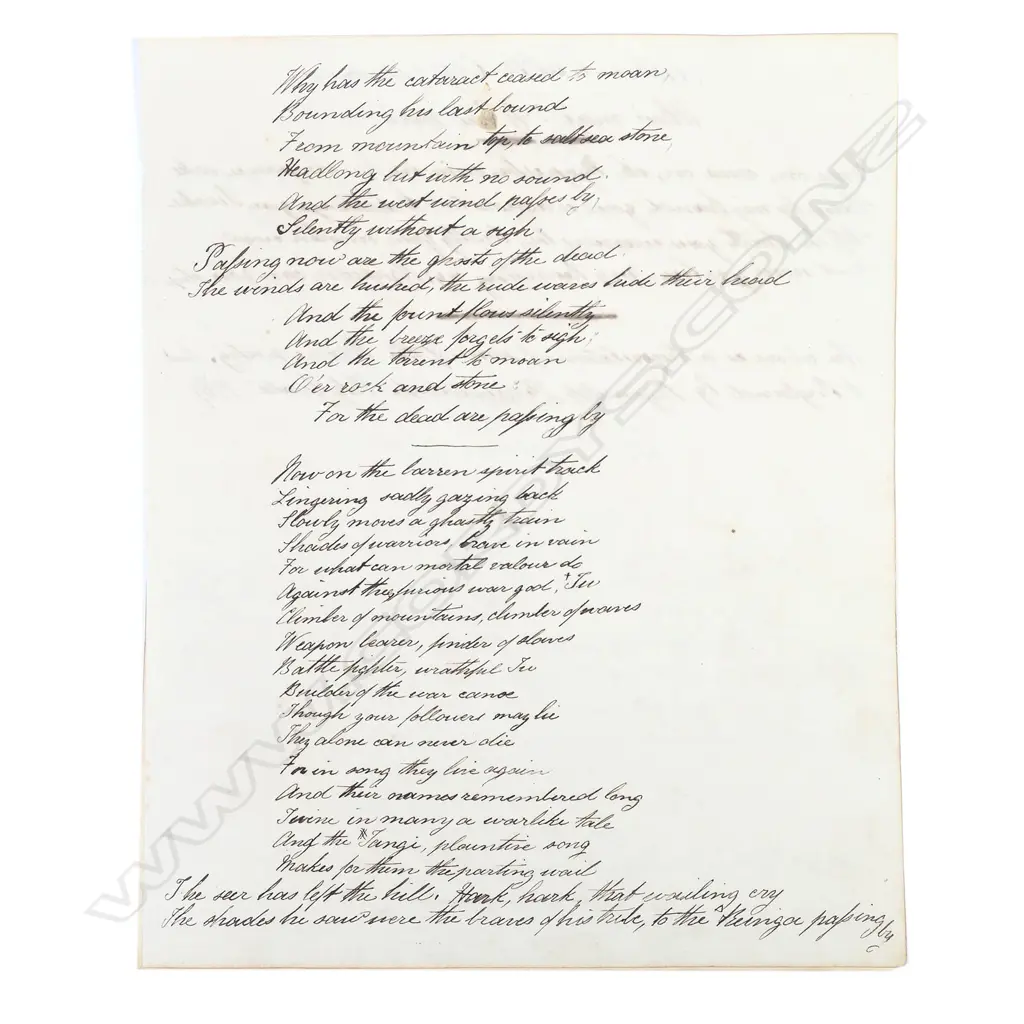 Why has the cataract ceased to moan
Bounding his last bound
From mountain top, to salt sea stone,
Headlong but with no sound.
And the west wind passes by,
Silently without a sigh.
Passing now are the ghosts of the dead.
The winds are hushed, the rude waves hide their head
And the fount flows silently
And the breeze forgets to sigh;
And the torrent to moan
O'er rock and stone:
For the dead are passing by
Now on the barren spirit track
Lingering sadly gazing back
Slowly moves a ghastly train
Shades of warriors, brave in vain
For what can mortal valour do
Against the furious war god, Tu
Climber of mountains, climber of waves
Weapon bearer, finder of slaves
Battle fighter, wrathful Tu
Builder of the war canoe
Though your followers may lie
They alone can never die
For in song they live again
And their names remembered long
Twine in many a warlike tale
And the Tangi, plaintive song
Makes for them the parting wail
The seer has left the hill. Hark, hark, that wailing cry
The shades he saw were the braves of his tribe, to the Reinga passing by
WWW.CORDYS.CO.NZ